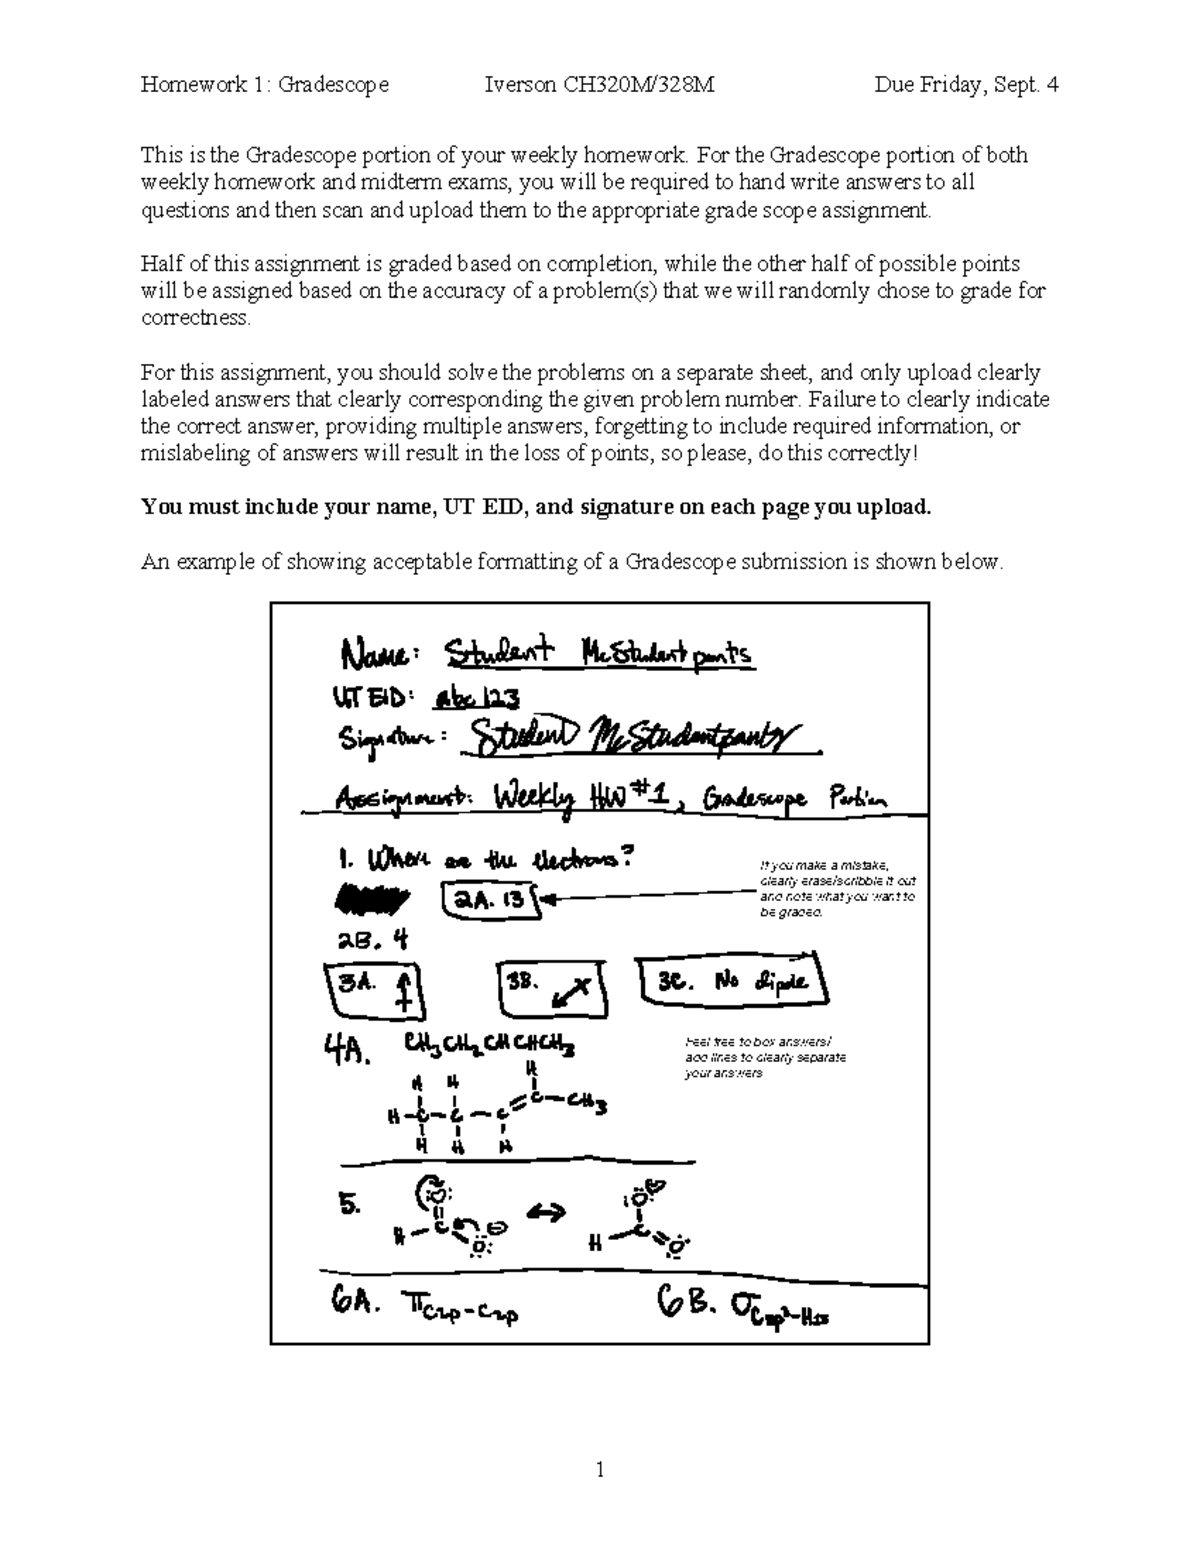 Homework 1: Gradescope Iverson CH320M/328M Due Friday, Sept. 4
This is the Gradescope portion of your weekly homework. For the Gradescope portion of both
weekly homework and midterm exams, you will be required to hand write answers to all
questions and then scan and upload them to the appropriate grade scope assignment.
Half of this assignment is graded based on completion, while the other half of possible points
will be assigned based on the accuracy of a problem(s) that we will randomly chose to grade for
correctness.
For this assignment, you should solve the problems on a separate sheet, and only upload clearly
labeled answers that clearly corresponding the given problem number. Failure to clearly indicate
the correct answer, providing multiple answers, forgetting to include required information, or
mislabeling of answers will result in the loss of points, so please, do this correctly!
You must include your name, UT EID, and signature on each page you upload.
An example of showing acceptable formatting of a Gradescope submission is shown below.
Name: Student McStudentpants
UT EID: abc123
Signature: Student McStudentpants
Assignment: Weekly HW #1, Gradescope Portion
1. Where are the electrons?
If you make a mistake,
clearly erase/scribble it out
and note what you want to
be graded.
2A. 13
2B. 4
3A. 3B. 3C. No dipole
4A. CH3CH2CHCHCH3
Feel free to box answers/
add lines to clearly separate
your answers
H H H
H-C-C-C=C-CH3
H H H
5.
H C O O ↔ H C O O
6A. πC2p-C2p 6B. σCsp²-H1s
1